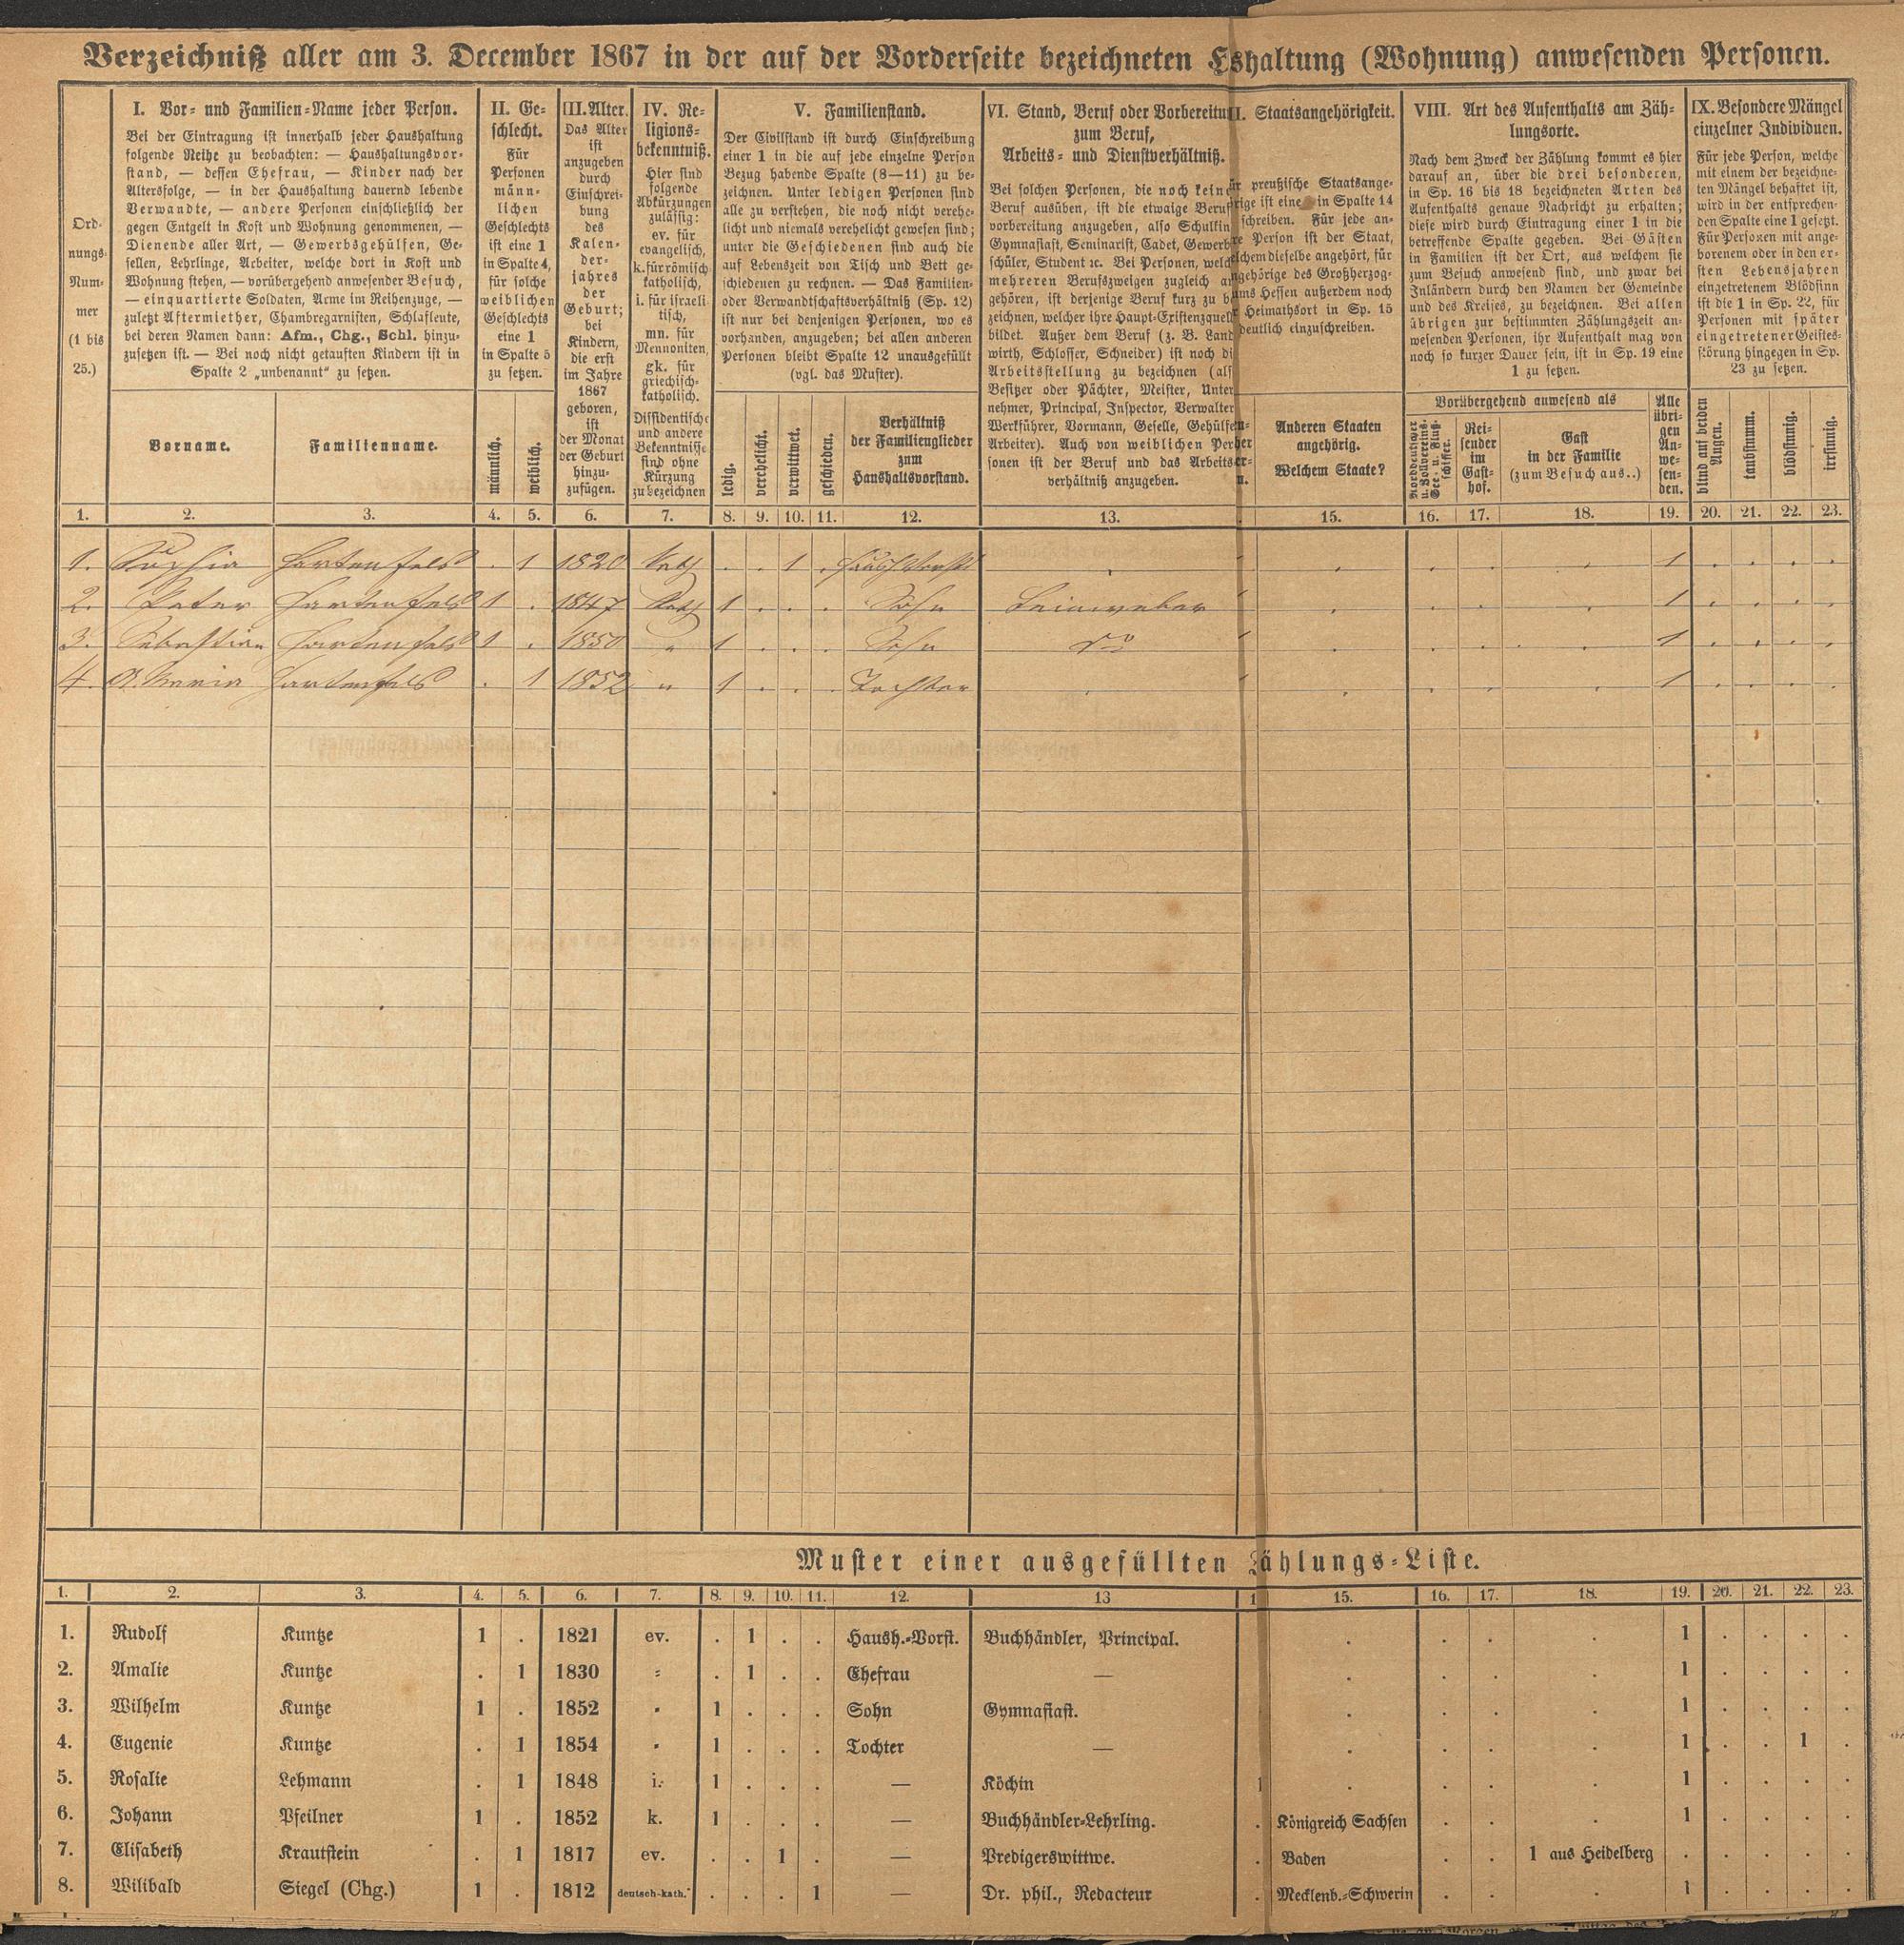 Verzeichniß aller am 3. December 1867 in der auf der Vorderseite bezeichneten shaltung (Wohnung) anwesenden Personen.
Ord-
nungs-
Num-
mer
(1 bis
25.)
I. Vor- und Familien-Name jeder Person.
Bei der Eintragung ist innerhalb jeder Haushaltung
folgende Reihe zu beobachten: — Haushaltungsvor-
stand, — dessen Ehefrau, — Kinder nach der
Altersfolge, — in der Haushaltung dauernd lebende
Verwandte, — andere Personen einschließlich der
gegen Entgelt in Kost und Wohnung genommenen, —
Dienende aller Art, — Gewerbsgehülfen, Ge-
sellen, Lehrlinge, Arbeiter, welche dort in Kost und
Wohnung stehen, — vorübergehend anwesender Besuch,
— einquartierte Soldaten, Arme im Reihenzuge, —
zuletzt Aftermiether, Chambregarnisten, Schlafleute,
bei deren Namen dann: Afm., Chg., Schl. hinzu-
zusetzen ist. — Bei noch nicht getauften Kindern ist in
Spalte 2 „unbenannt“ zu setzen.
Vorname.
Familienname.
II. Ge-
schlecht.
Für
Personen
männ-
lichen
Geschlechts
ist eine 1
in Spalte 4,
für solche
weiblichen
Geschlechts
eine 1
in Spalte 5
zu setzen.
männlich.
weiblich.
III. Alter.
Das Alter
ist
anzugeben
durch
Einschrei-
bung
des
Kalen-
der-
jahres
der
Geburt;
bei
Kindern,
die erst
im Jahre
1867
geboren,
ist
der Monat
der Geburt
hinzu-
zufügen.
IV. Re-
ligions-
bekenntniß.
Hier sind
folgende
Abkürzungen
zulässig:
ev. für
evangelisch,
k. für römisch-
katholisch,
i. für israeli-
tisch,
mn. für
Mennoniten,
gk. für
griechisch-
katholisch.
Dissidentische
und andere
Bekenntnisse
sind ohne
Kürzung
zu bezeichnen
V. Familienstand.
Der Civilstand ist durch Einschreibung
einer 1 in die auf jede einzelne Person
Bezug habende Spalte (8—11) zu be-
zeichnen. Unter ledigen Personen sind
alle zu verstehen, die noch nicht verehe-
licht und niemals verehelicht gewesen sind;
unter die Geschiedenen sind auch die
auf Lebenszeit von Tisch und Bett ge-
schiedenen zu rechnen. — Das Familien-
oder Verwandtschaftsverhältniß (Sp. 12)
ist nur bei denjenigen Personen, wo es
vorhanden, anzugeben; bei allen anderen
Personen bleibt Spalte 12 unausgefüllt
(vgl. das Muster).
ledig.
verehelicht.
verwittwet.
geschieden.
Verhältniß
der Familienglieder
zum
Haushaltsvorstand.
VI. Stand, Beruf oder Vorbereitun
zum Beruf,
Arbeits- und Dienstverhältniß.
Bei solchen Personen, die noch keine
Beruf ausüben, ist die etwaige Beruf
vorbereitung anzugeben, also Schullin
Gymnasiast, Seminarist, Cadet, Gewerb
schüler, Student ꝛc. Bei Personen, welch
mehreren Berufszweigen zugleich an
gehören, ist derjenige Beruf kurz zu b
zeichnen, welcher ihre Haupt-Existenzquell
bildet. Außer dem Beruf (z. B. Land
wirth, Schlosser, Schneider) ist noch di
Arbeitsstellung zu bezeichnen (als
Besitzer oder Pächter, Meister, Unter
nehmer, Principal, Inspector, Verwalter
Werkführer, Vormann, Geselle, Gehülfe
Arbeiter). Auch von weiblichen Per
sonen ist der Beruf und das Arbeits
verhältniß anzugeben.
I. Staatsangehörigkeit.
r preußische Staatsange-
rige ist eine in Spalte 14
schreiben. Für jede an-
re Person ist der Staat,
lchem dieselbe angehört, für
gehörige des Großherzog-
ums Hessen außerdem noch
r Heimathsort in Sp. 15
deutlich einzuschreiben.
Anderen Staaten
angehörig.
Welchem Staate?
VIII. Art des Aufenthalts am Zäh-
lungsorte.
Nach dem Zweck der Zählung kommt es hier
darauf an, über die drei besonderen,
in Sp. 16 bis 18 bezeichneten Arten des
Aufenthalts genaue Nachricht zu erhalten;
diese wird durch Eintragung einer 1 in die
betreffende Spalte gegeben. Bei Gästen
in Familien ist der Ort, aus welchem sie
zum Besuch anwesend sind, und zwar bei
Inländern durch den Namen der Gemeinde
und des Kreises, zu bezeichnen. Bei allen
übrigen zur bestimmten Zählungszeit an-
wesenden Personen, ihr Aufenthalt mag von
noch so kurzer Dauer sein, ist in Sp. 19 eine
1 zu setzen.
Vorübergehend anwesend als
Norddeutscher
u. Zollvereins-
See- u. Fluß-
schiffer.
Rei-
sender
im
Gast-
hof.
Gast
in der Familie
(zum Besuch aus..)
Alle
übri-
gen
An-
we-
sen-
den.
IX. Besondere Mängel
einzelner Individuen.
Für jede Person, welche
mit einem der bezeichne-
ten Mängel behaftet ist,
wird in der entsprechen-
den Spalte eine 1 gesetzt.
Für Personen mit ange-
borenem oder in den er-
sten Lebensjahren
eingetretenem Blödsinn
ist die 1 in Sp. 22, für
Personen mit später
eingetretener Geistes-
störung hingegen in Sp.
23 zu setzen.
blind auf beiden
Augen.
taubstumm.
blödsinnig.
irrsinnig.
1. 2. 3. 4. 5. 6. 7. 8. 9. 10. 11. 12. 13. 15. 16. 17. 18. 19. 20. 21. 22. 23.
1. Sophia Hartenfels . 1 1820 Kath . . 1 . Haush Vorst. . . . . . 1 . . . .
2. Peter Hartenfels 1 . 1847 Kath 1 . . . Sohn Leinweber . . . . 1 . . . .
3. Sebastian Hartenfels 1 . 1850 " 1 . . . Sohn do . . . . 1 . . . .
4. A. Maria Hartenfels . 1 1852 " 1 . . . Tochter . . . . . 1 . . . .
Muster einer ausgefüllten Zählungs-Liste.
1. 2. 3. 4. 5. 6. 7. 8. 9. 10. 11. 12. 13 1 15. 16. 17. 18. 19. 20. 21. 22. 23.
1. Rudolf Kuntze 1 . 1821 ev. . 1 . . Haush.-Vorst. Buchhändler, Principal. . . . . 1 . . . .
2. Amalie Kuntze . 1 1830 " . 1 . . Ehefrau — . . . . 1 . . . .
3. Wilhelm Kuntze 1 . 1852 " 1 . . . Sohn Gymnasiast. . . . . 1 . . . .
4. Eugenie Kuntze . 1 1854 " 1 . . . Tochter — . . . . 1 . . 1 .
5. Rosalie Lehmann . 1 1848 i. 1 . . . — Köchin 1 . . . . 1 . . . .
6. Johann Pfeilner 1 . 1852 k. 1 . . . — Buchhändler-Lehrling. . Königreich Sachsen . . . 1 . . . .
7. Elisabeth Krautstein . 1 1817 ev. . . 1 . — Predigerswittwe. . Baden . . 1 aus Heidelberg . . . . .
8. Wilibald Siegel (Chg.) 1 . 1812 deutsch-kath. . . . 1 — Dr. phil., Redacteur . Mecklenb.-Schwerin . . . 1 . . . .